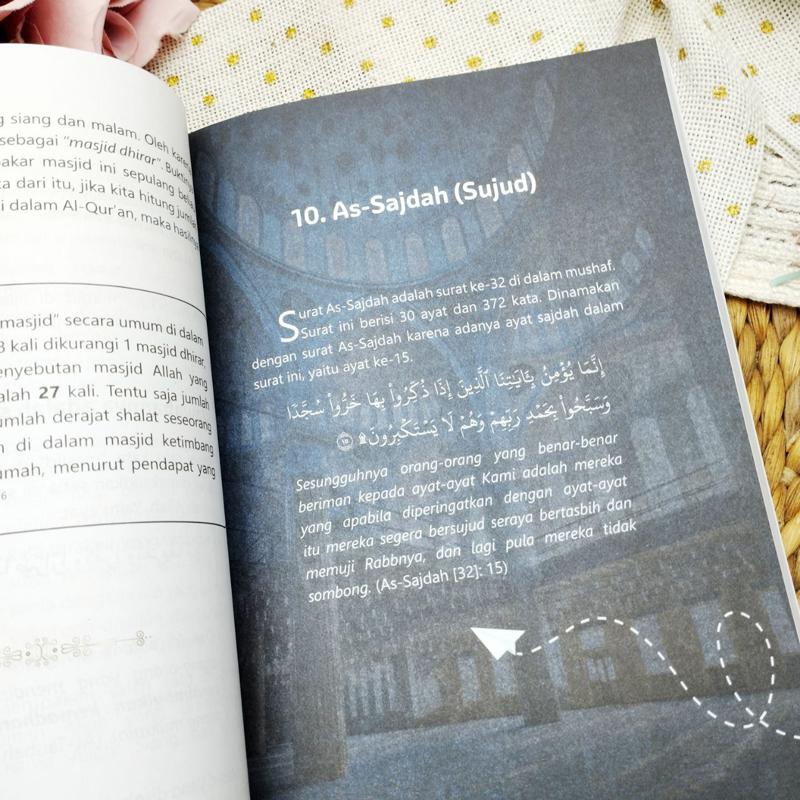 g siang dan malam. Oleh karena
sebagai "masjid dhirar". Bukti
bakar masjid ini sepulang
ka dari itu, jika kita hitung jumlah
i dalam Al-Qur'an, maka hasilnya
masjid" secara umum di dalam
8 kali dikurangi 1 masjid dhirar,
enyebutan masjid Allah yang
alah 27 kali. Tentu saja jumlah
umlah derajat shalat seseorang
n di dalam masjid ketimbang
umah, menurut pendapat yang
6
10. As-Sajdah (Sujud)
Surat As-Sajdah adalah surat ke-32 di dalam mushaf.
Surat ini berisi 30 ayat dan 372 kata. Dinamakan
dengan surat As-Sajdah karena adanya ayat sajdah dalam
surat ini, yaitu ayat ke-15.
إِنَّمَا يُؤْمِنُ بِـَٔايَٰتِنَا ٱلَّذِينَ إِذَا ذُكِّرُوا۟ بِهَا خَرُّوا۟ سُجَّدًا
وَسَبَّحُوا۟ بِحَمْدِ رَبِّهِمْ وَهُمْ لَا يَسْتَكْبِرُونَ ۩ ١٥
Sesungguhnya orang-orang yang benar-benar
beriman kepada ayat-ayat Kami adalah mereka
yang apabila diperingatkan dengan ayat-ayat
itu mereka segera bersujud seraya bertasbih dan
memuji Rabbnya, dan lagi pula mereka tidak
sombong. (As-Sajdah [32]: 15)